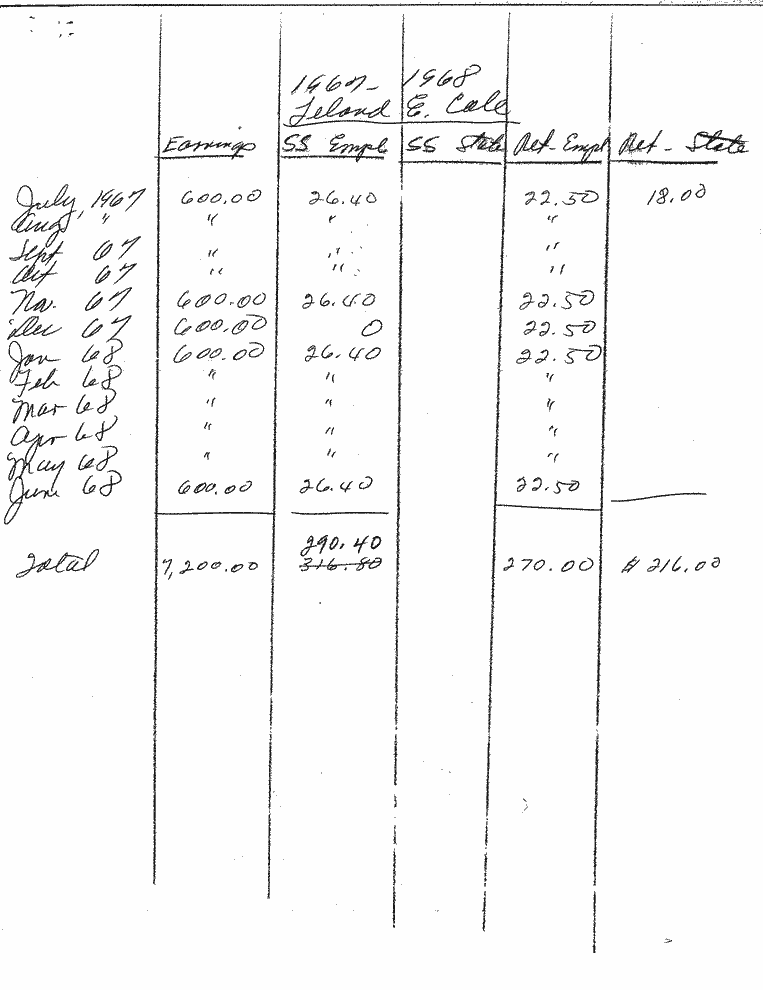 1967- 1968
Leland E. Cole
Earnings SS Empl SS State Ret-Empl Ret-State
July, 1967 600.00 26.40 22.50 18.00
Aug, " " " "
Sept 67 " " "
Oct 67 " " "
Nov. 67 600.00 26.40 22.50
Dec 67 600.00 0 22.50
Jan 68 600.00 26.40 22.50
Feb 68 " " "
Mar 68 " " "
Apr 68 " " "
May 68 " " "
June 68 600.00 26.40 22.50
290.40
Total 7,200.00 316.80 270.00 $216.00